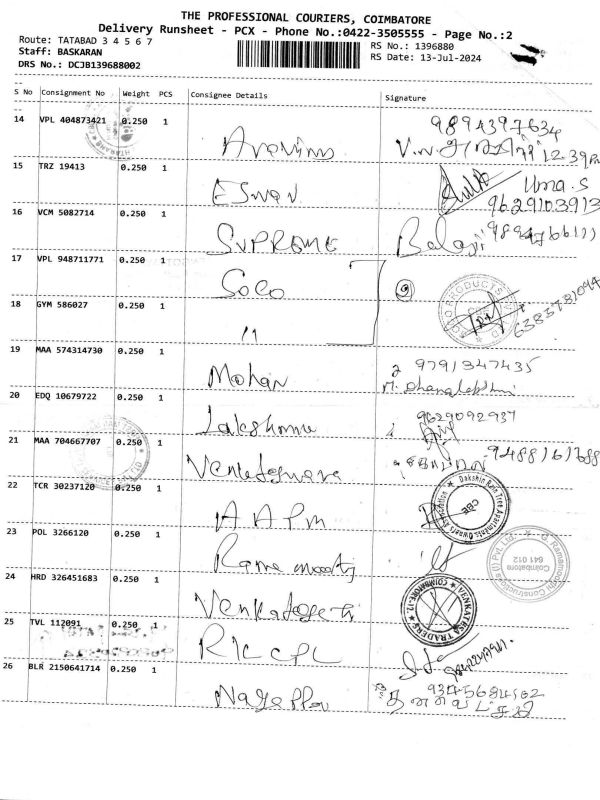 THE PROFESSIONAL COURIERS, COIMBATORE
Delivery Runsheet - PCX - Phone No.:0422-3505555 - Page No.:2
Route: TATABAD 3 4 5 6 7
RS No.: 1396880
Staff: BASKARAN
RS Date: 13-Jul-2024
DRS No.: DCJB139688002
S No Consignment No Weight PCS Consignee Details Signature
14 VPL 404873421 0.250 1
9894397634
12.39 Pm
15 TRZ 19413 0.250 1 ESWAR
Uma.S
9629103913
16 VCM 5082714 0.250 1 SUPREME Balaji
17 VPL 948711771 0.250 1 Solo
18 GYM 586027 0.250 1 11
6383781094
19 MAA 574314730 0.250 1 Mohan 9791347435
M. Dhanalakshmi
20 EDQ 10679722 0.250 1 Lakshmi 9629092937
21 MAA 704667707 0.250 1 Venkateswara
22 TCR 30237120 0.250 1 AAPM
Dakshin Rain Tree Apartments Owners Association
CBE
23 POL 3266120 0.250 1 Ramamoorty
G. Ramamoorthy Constructions (I) Pvt. Ltd.
Coimbatore
641 012
24 HRD 326451683 0.250 1 Venkatesh
VENKATESA TRADERS
COIMBATORE-12.
25 TVL 112091 0.250 1 RKCPL
26 BLR 2150641714 0.250 1 Nagappa
9345684562